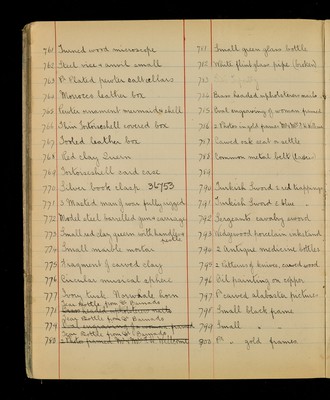 761 Turned wood microscope
762 Steel vice & anvil small
763 Pr Plated pewter salt cellars
764 Morocco leather box
765 Pewter ornament mermaid & shell
766 Thin Tortoiseshell covered box
767 Tooled leather box
768 Red clay Quern
769 Tortoiseshell card case
770 Silver book clasp 36753
771 3 Masted man of war fully rigged
772 Model steel barrelled gun & carriage
773 Small red clay quern with handle &
pestle
774 Small marble mortar
775 Fragment of carved clay
776 Circular musical sphere
777 Ivory tusk Norwale horn
Bottle from Dr Barnado
Brass headed upholsterers nails
Bottle from Dr Barnado
779 Oval engraving of a woman framed
Bottle from Dr Barnado
780 2 Photos framed Mr & Mrs H. Wellcome
781 Small green glass bottle
782 White flint glass pipe (broken)
783
784 Brass headed upholsterers nails
785 Oval engraving of woman framed
786 2 Photos in gold frames Mr & Mrs H. Wellcome
787 Carved oak seat & settle
788 Common metal belt clasp
789
790 Turkish Sword & red trappings
791 Turkish Sword & blue "
792 Sergeants cavalry sword
793 Wedgwood porcelain cakestand
794 2 Antique medicine bottles
795 2 Collections of knives, carved wood
796 Oil painting on copper
797 Pr carved alabaster pictures
798 Small black frame
799 Small " "
800 Pr " gold frames